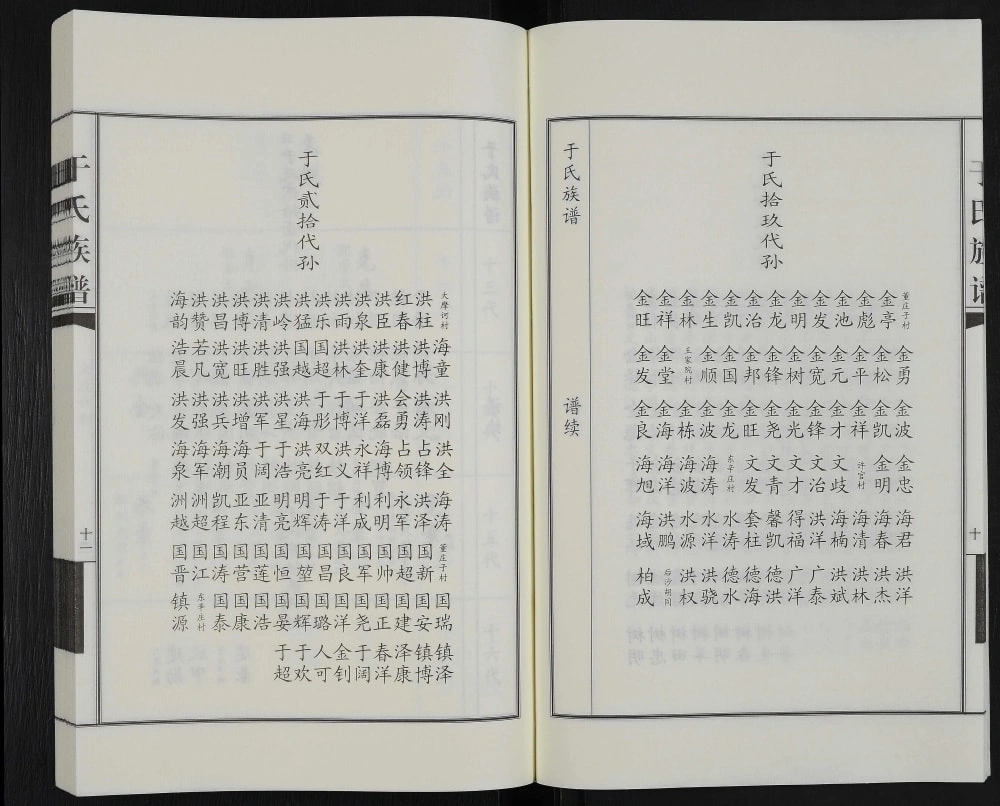 于氏族谱
十
于氏拾玖代孙
董庄子村 金亭 金彪 金池 金发 金明 金龙 金治 金凯 金生 金林 金祥 金旺
金勇 金松 金平 金元 金宽 金树 金锋 金邦 金国 金顺 王家院村 金堂 金发
金波 金凯 金祥 金才 金锋 金光 金尧 金旺 金龙 金波 金栋 金海 金良
金忠 金明 许官村 文歧 文治 文才 文青 文发 东辛庄村 海涛 海波 海洋 海旭
海君 海春 海清 海楠 洪洋 得福 馨凯 套柱 水涛 水洋 水源 洪鹏 海域
洪洋 洪杰 洪林 洪斌 广泰 广洋 德洪 德海 德水 洪骁 洪权 后沙胡同 柏成
于氏族谱
谱续
于氏贰拾代孙
大摩河村 洪柱 红春 洪臣 洪泉 洪雨 洪乐 洪猛 洪岭 洪清 洪博 洪昌 洪赞 海韵
海童 洪博 洪健 洪康 洪奎 洪林 国超 国越 洪强 洪胜 洪旺 洪宽 若凡 浩晨
洪刚 洪涛 会勇 洪磊 于洋 于博 于彤 洪海 洪星 洪军 洪增 洪兵 洪强 洪发
洪全 占锋 占领 海博 永祥 洪义 双红 洪亮 于浩 于阔 海员 海潮 海军 海泉
海涛 洪泽 永军 利明 利成 于洋 于涛 明辉 明亮 亚清 亚东 凯程 洲超 洲越
董庄子村 国新 国超 国帅 国军 国良 国昌 国堃 国恒 国莲 国营 国涛 国江 国晋
国瑞 国安 国建 国正 国尧 国洋 国璐 国辉 国晏 国浩 国康 国泰 东辛庄村 镇源
镇泽 镇博 泽康 春洋 于阔 金钊 人可 于欢 于超
于氏族谱
十二